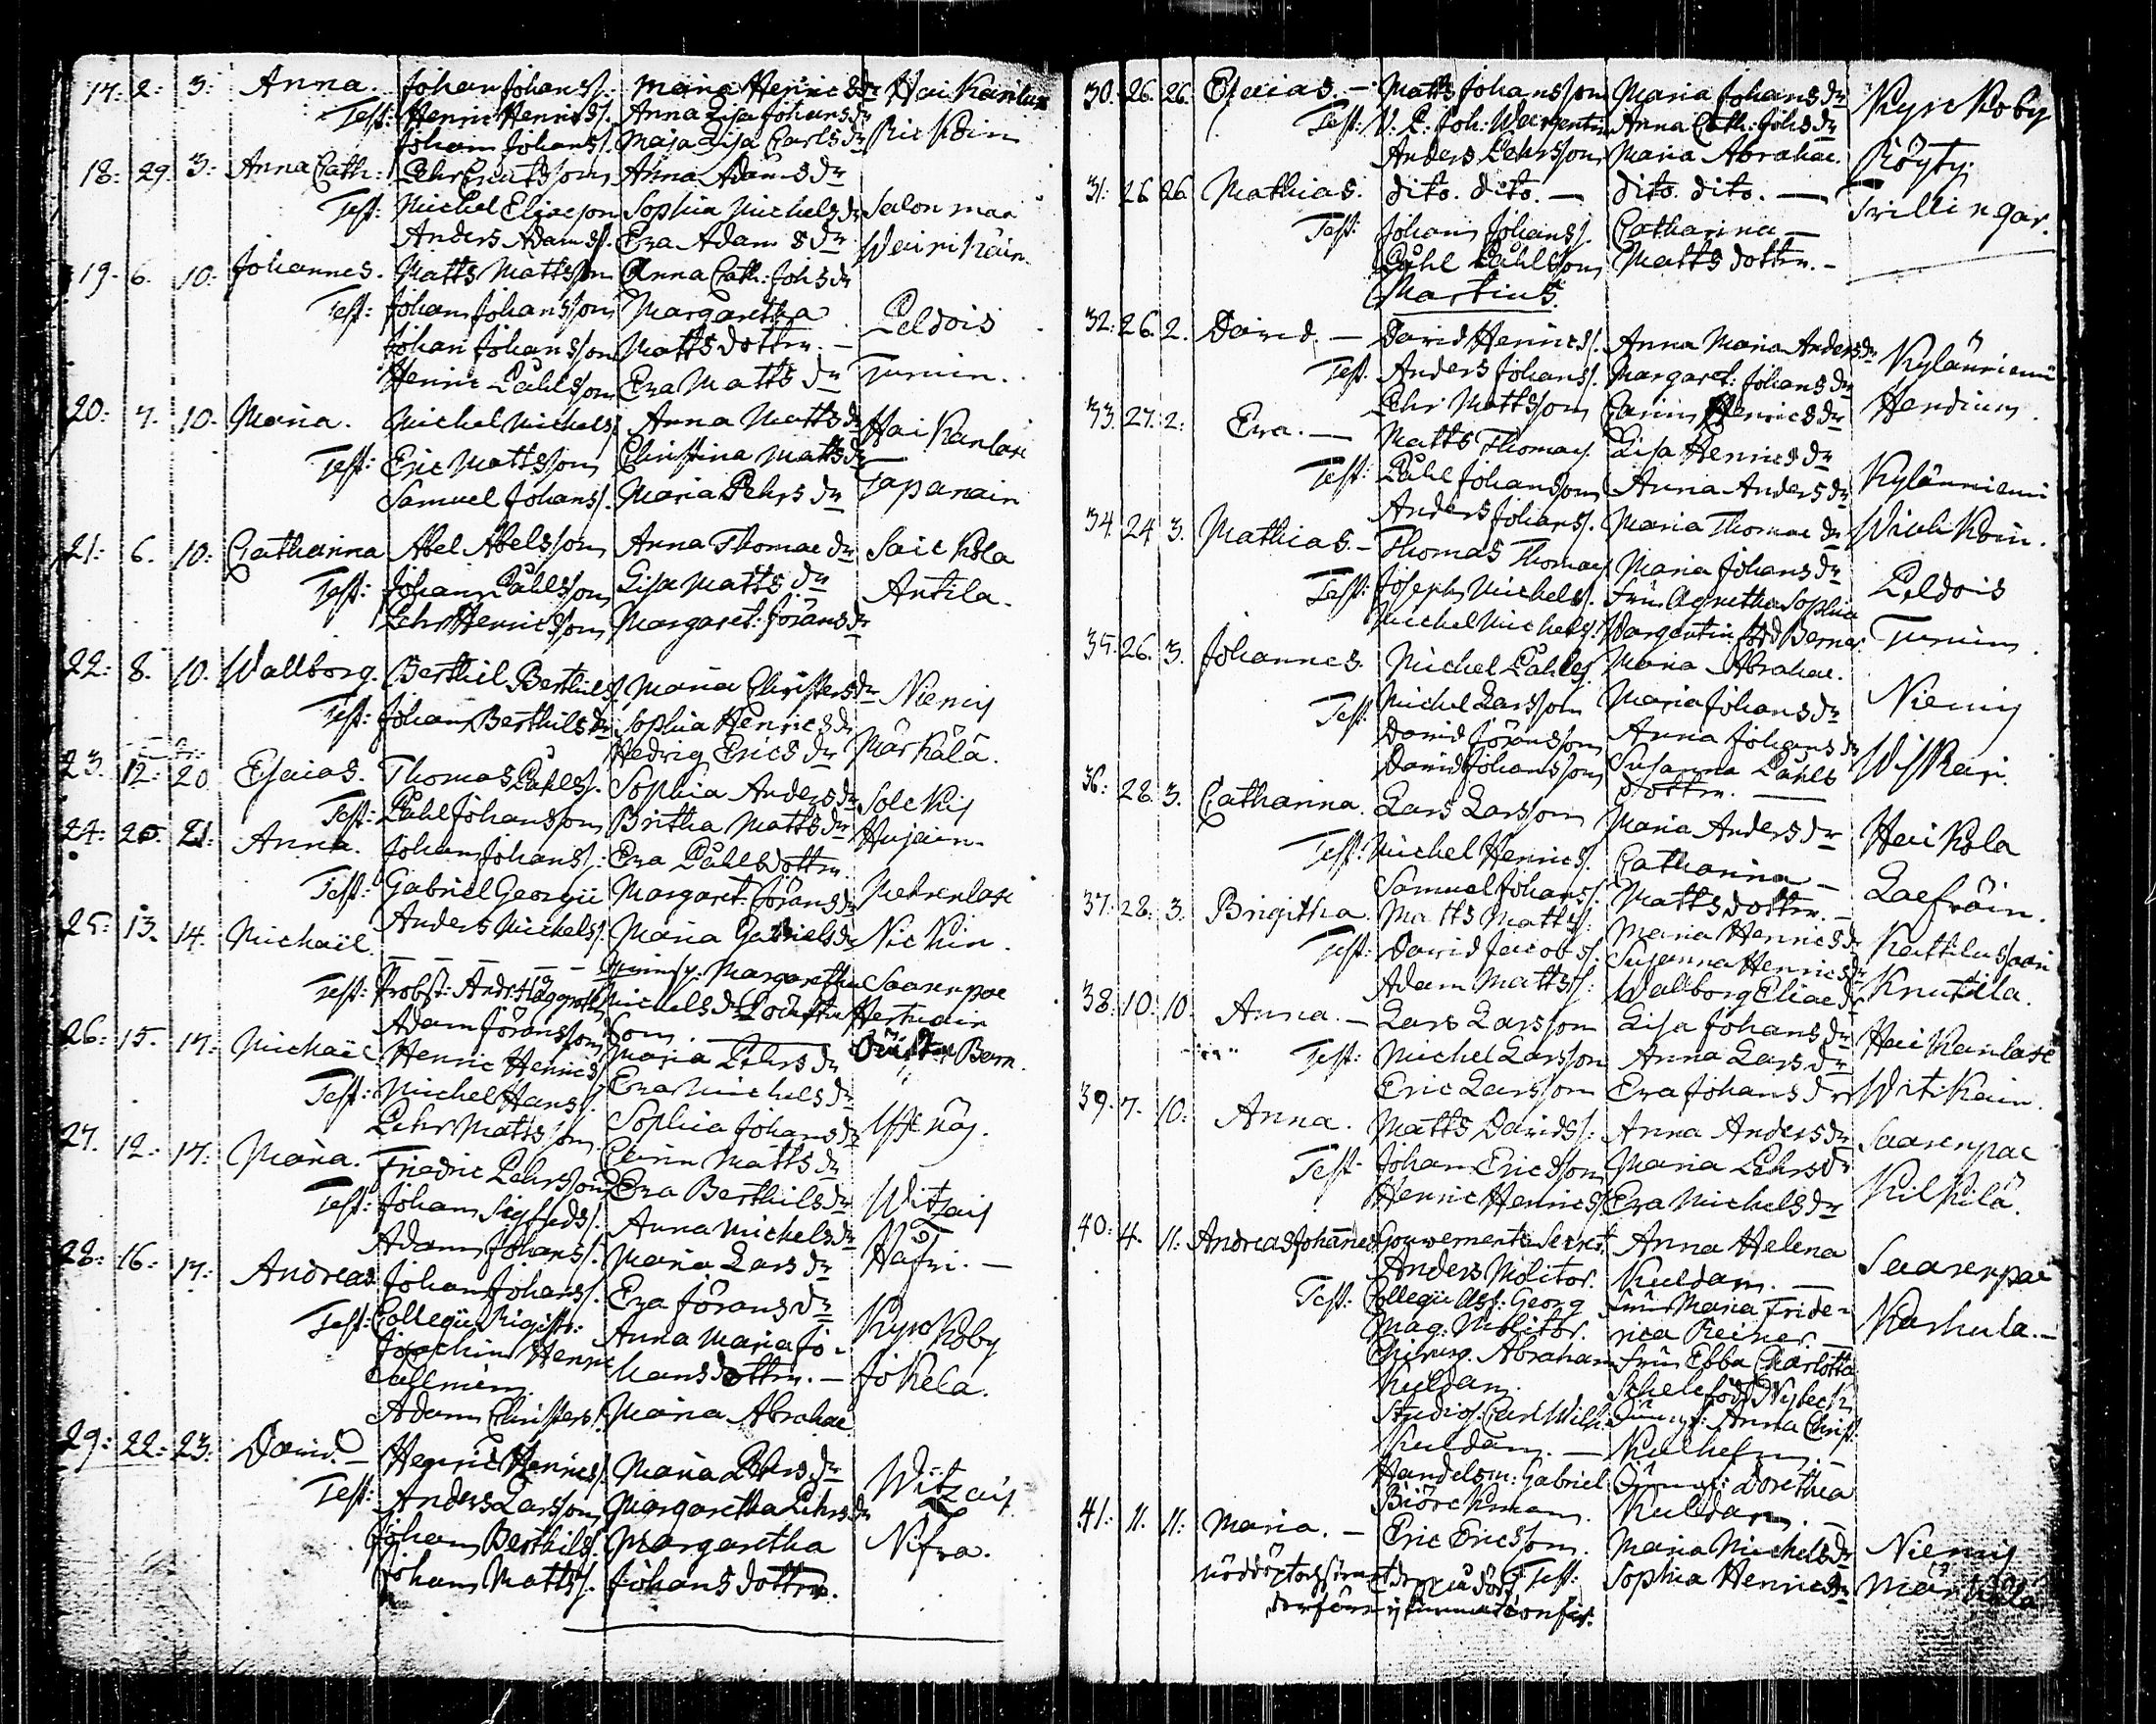 17: 2: 3: Anna. Johan Johanss. Maria Henricsdr Haikanlax
Test: Henric Henricss. Anna Lisa Johansdr
Johan Johanss. Maja Lisa Carlsdr Rickoin
18: 29. 3: Anna Cath: Pehr Knutsson Anna Adamsdr
Test: Michel Eliaeson Sophia Michelsdr Salonmaa
Anders Adamss. Eva Adamsdr Wainikain.
19. 6. 10: Johannes. Matts Mattsson Anna Cath: Johsdr
Test: Johan Johansson Margaretha Peldois
Johan Johansson Mattsdotter. —
Henric Påhlsson Eva Mattsdr Turnin.
20: 7. 10. Maria. Michel Michels. Anna Mattsdr Haikanlax
Test: Eric Mattsson Christina Mattsdr
Samuel Johanss. Maria Pehrsdr Tapanain
21: 6. 10: Catharina Abel Abelsson Anna Thomaedr Saickola
Test: Johan Påhlsson Lisa Mattsdr Antila.
Pehr Henricsson Margaret: Jöransdr
22: 8. 10. Wallborg. Berthil Berthils. Maria Christersdr Niemis
Test: Johan Berthilsdr Sophia Henricsdr
Hedvig Ericsdr Märkälä.
23. 12: 20 Esaias. Thomas Påhlss. Sophia Andersdr Solckis
Test: Påhl Johansson Britha Mattsdr Hujain.
24: 20. 21: Anna. Johan Johanss: Eva Påhlsdotter.
Test: Gabriel Georgii Margaret: Jöransdr Mehrenlax
Anders Michels. Maria Gabrielsdr Nickin.
25: 13. 14. Michaël. — — — — — Margaretha Saarenpae
Test: Probst: And: Häggroth Michelsdr
Adam Jöransson
26: 15. 17: Michaël Henric Henrics. Maria Pehrsdr
Test: Michel Hanss. Eva Michelsdr
Pehr Mattsson Sophia Johansdr
27. 12: 17: Maria. Friedric Pehrsson Carin Mattsdr
Test: Johan Sigfreds. Eva Berthilsdr Witsais
Adam Johans. Anna Michelsdr
28: 16: 17: Andreas Johan Johanss. Maria Larsdr
Test: Collegii Registr: Eva Jöransdr Kyrckoby
Joachim Henric Anna Maria Jo-
hansdotter. — Jokela.
Adam Christers. Maria Abrahae
29: 22: 23: David. — Henric Henrics. Maria Pehrsdr Witsais
Test: Anders Larsson Margaretha Pehrsdr
Johan Berthils. Margaretha
Johan Mattss. Johansdotter.
30. 26. 26. Esaias. — Matts Johansson Maria Johansdr Kyrckoby
Test: V: P: Joh: Wargentin Anna Cath: Johsdr
Anders Pehrsson Maria Abrahae. Röyty.
31: 26 26 Mathias. dito. dito. — dito. dito. — Trillingar.
Test: Johan Johanss. Catharina —
Påhl Påhlsson Mattsdotter. —
Martius.
32: 26. 2. David. — David Henrics. Anna Maria Andersdr Kyläniemi
Test. Anders Johanss. Margaret: Johansdr
Pehr Mattsson Carin Henricsdr
33. 27. 2: Eva. — Matts Thomas. Lisa Henricsdr
Test: Påhl Johansson Anna Andersdr Kyläniemi
Anders Johanss. Maria Thomaedr
34. 24 3. Mathias. — Thomas Thomas. Maria Johansdr Peldois
Test: Joseph Michels. Fru Agnetha Sophia
Michel Michels. Wargentin född Berner Turnin.
35. 26. 3. Johannes. Michel Påhls. Maria Abrahae.
Test: Michel Larsson Maria Johansdr Niemis
David Jöransson Anna Johansdr
David Johansson Susanna Påhls
dotter. —
36: 28. 3. Catharina. Lars Larsson Maria Andersdr Heickola
Test: Michel Henrics. Catharina —
Samuel Johanss. Mattsdotter. —
37: 28: 3. Brigitha. Matts Mattss: Maria Henricsdr Kattilusaari
Test: David Jacobs. Susanna Henricsdr
Adam Mattss: Wallborg Eliaedr Knutila.
38. 10: 10. Anna. — Lars Larsson Lisa Johansdr Haikanlax
Test: Michel Larsson Anna Larsdr
Eric Larsson Eva Johansdr Witikain.
39. 7. 10: Anna. Matts Davids: Anna Andersdr Saarenpae
Test. Johan Ericsson Maria Pehrsdr
Henric Henrics. Eva Michelsdr Kilkilä.
40: 4. 11: Andreas Johannes Gouvernements Secret: Anna Helena Saarenpae
Anders Molitor. Kuldan. —
Test: Collegii Ass: Georg Fru Maria Fride-
Mag: Molitor. rica Reiner. — Karhula. —
Chirurg. Abraham Fru Ebba Charlotta
Kuldan. född
Studios: Carl Wilh: Anna Christ:
Kuldan. —
Handelsm: Gabriel Dorethea
Biörckman. Kuldan. —
41: 11. 11: Maria. — Eric Ericsson. Maria Michelsdr Niemis
Test: Sophia Henricsdr Märkälä